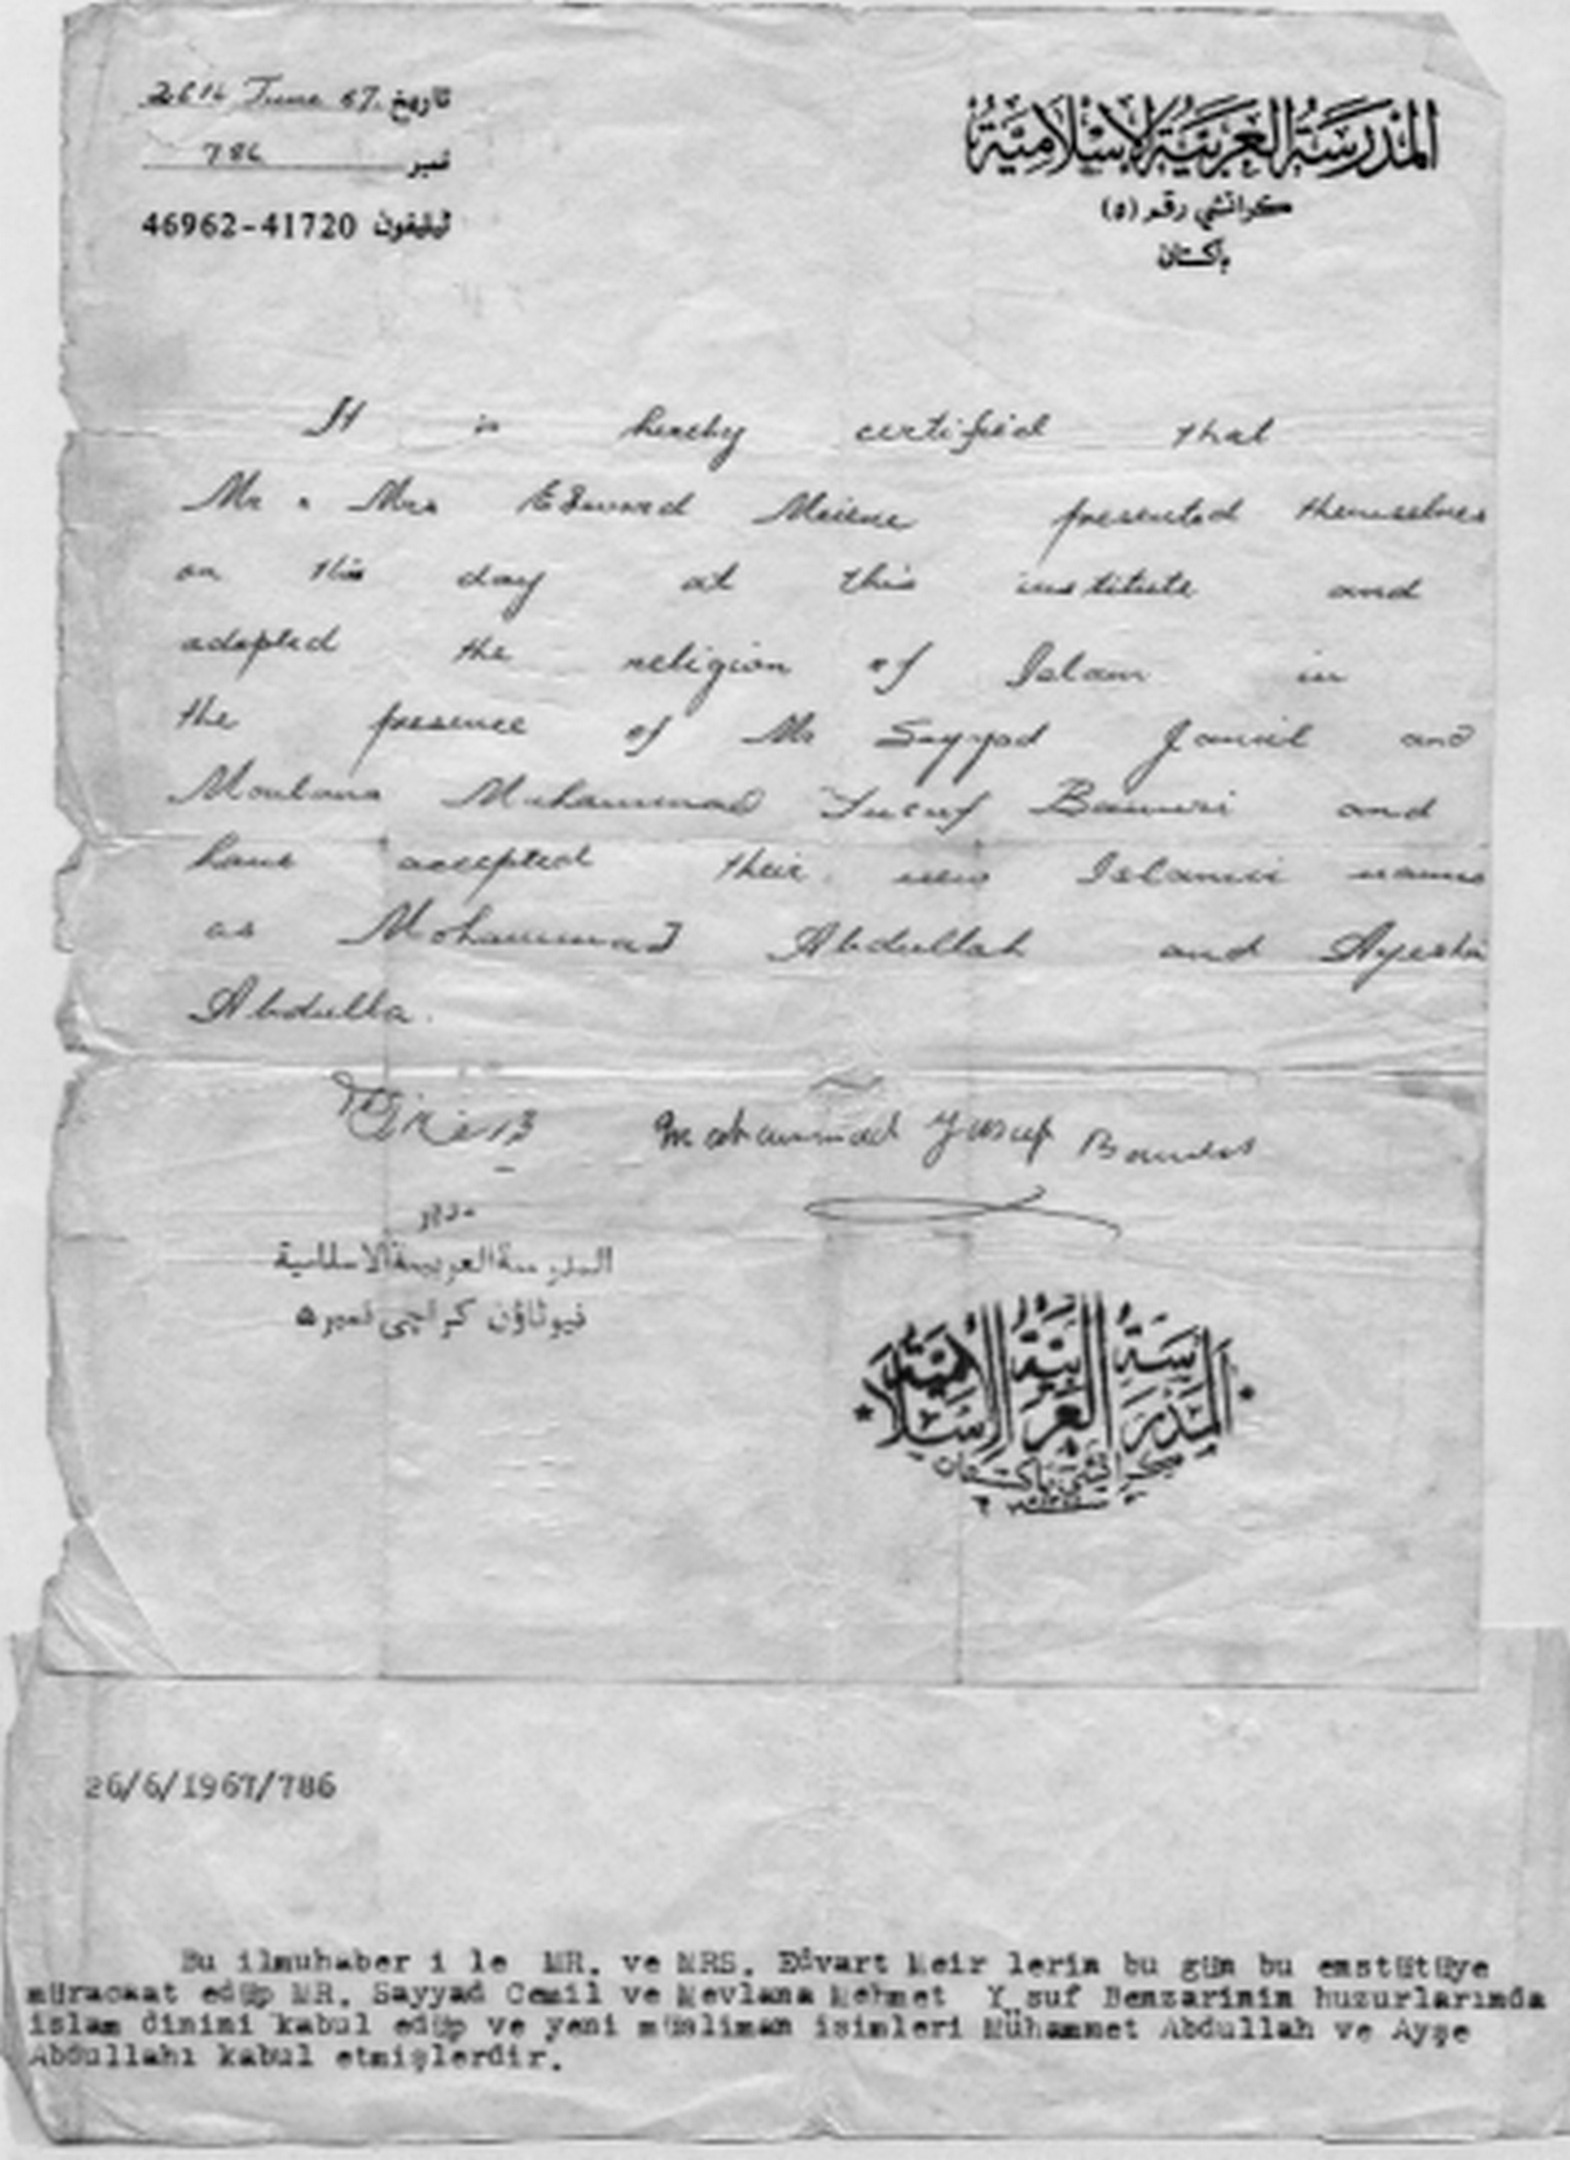 المدرسة العربية الإسلامية
كراتشي رقم (٥)
پاکستان
26th June 67. تاريخ
786 نمبر
46962-41720 ٹیلیفون
It is hereby certified that
Mr & Mrs Edward Meiene presented themselves
on this day at this institute and
adopted the religion of Islam in
the presence of Mr Sayyad Jamil and
Moulana Muhammad Yusuf Bannuri and
have accepted their new Islamic names
as Mohammad Abdullah and Ayesha
Abdulla.
Mohammad Yusuf
مدير
المدرسة العربية الاسلامية
نیوٹاؤن کراچی نمبر ۵
المدرسة العربية الإسلامية
كراتشي پاکستان
26/6/1967/786
Bu ilmuhaber i le MR. ve MRS. Edvart Meir lerin bu gün bu enstütüye
müracaat edüp MR. Sayyad Cemil ve Mevlana Mehmet Y suf Benzarinin huzurlarında
islam dinini kabul edüp ve yeni müsliman isimleri Mühammet Abdullah ve Ayşe
Abdullahı kabul etmişlerdir.